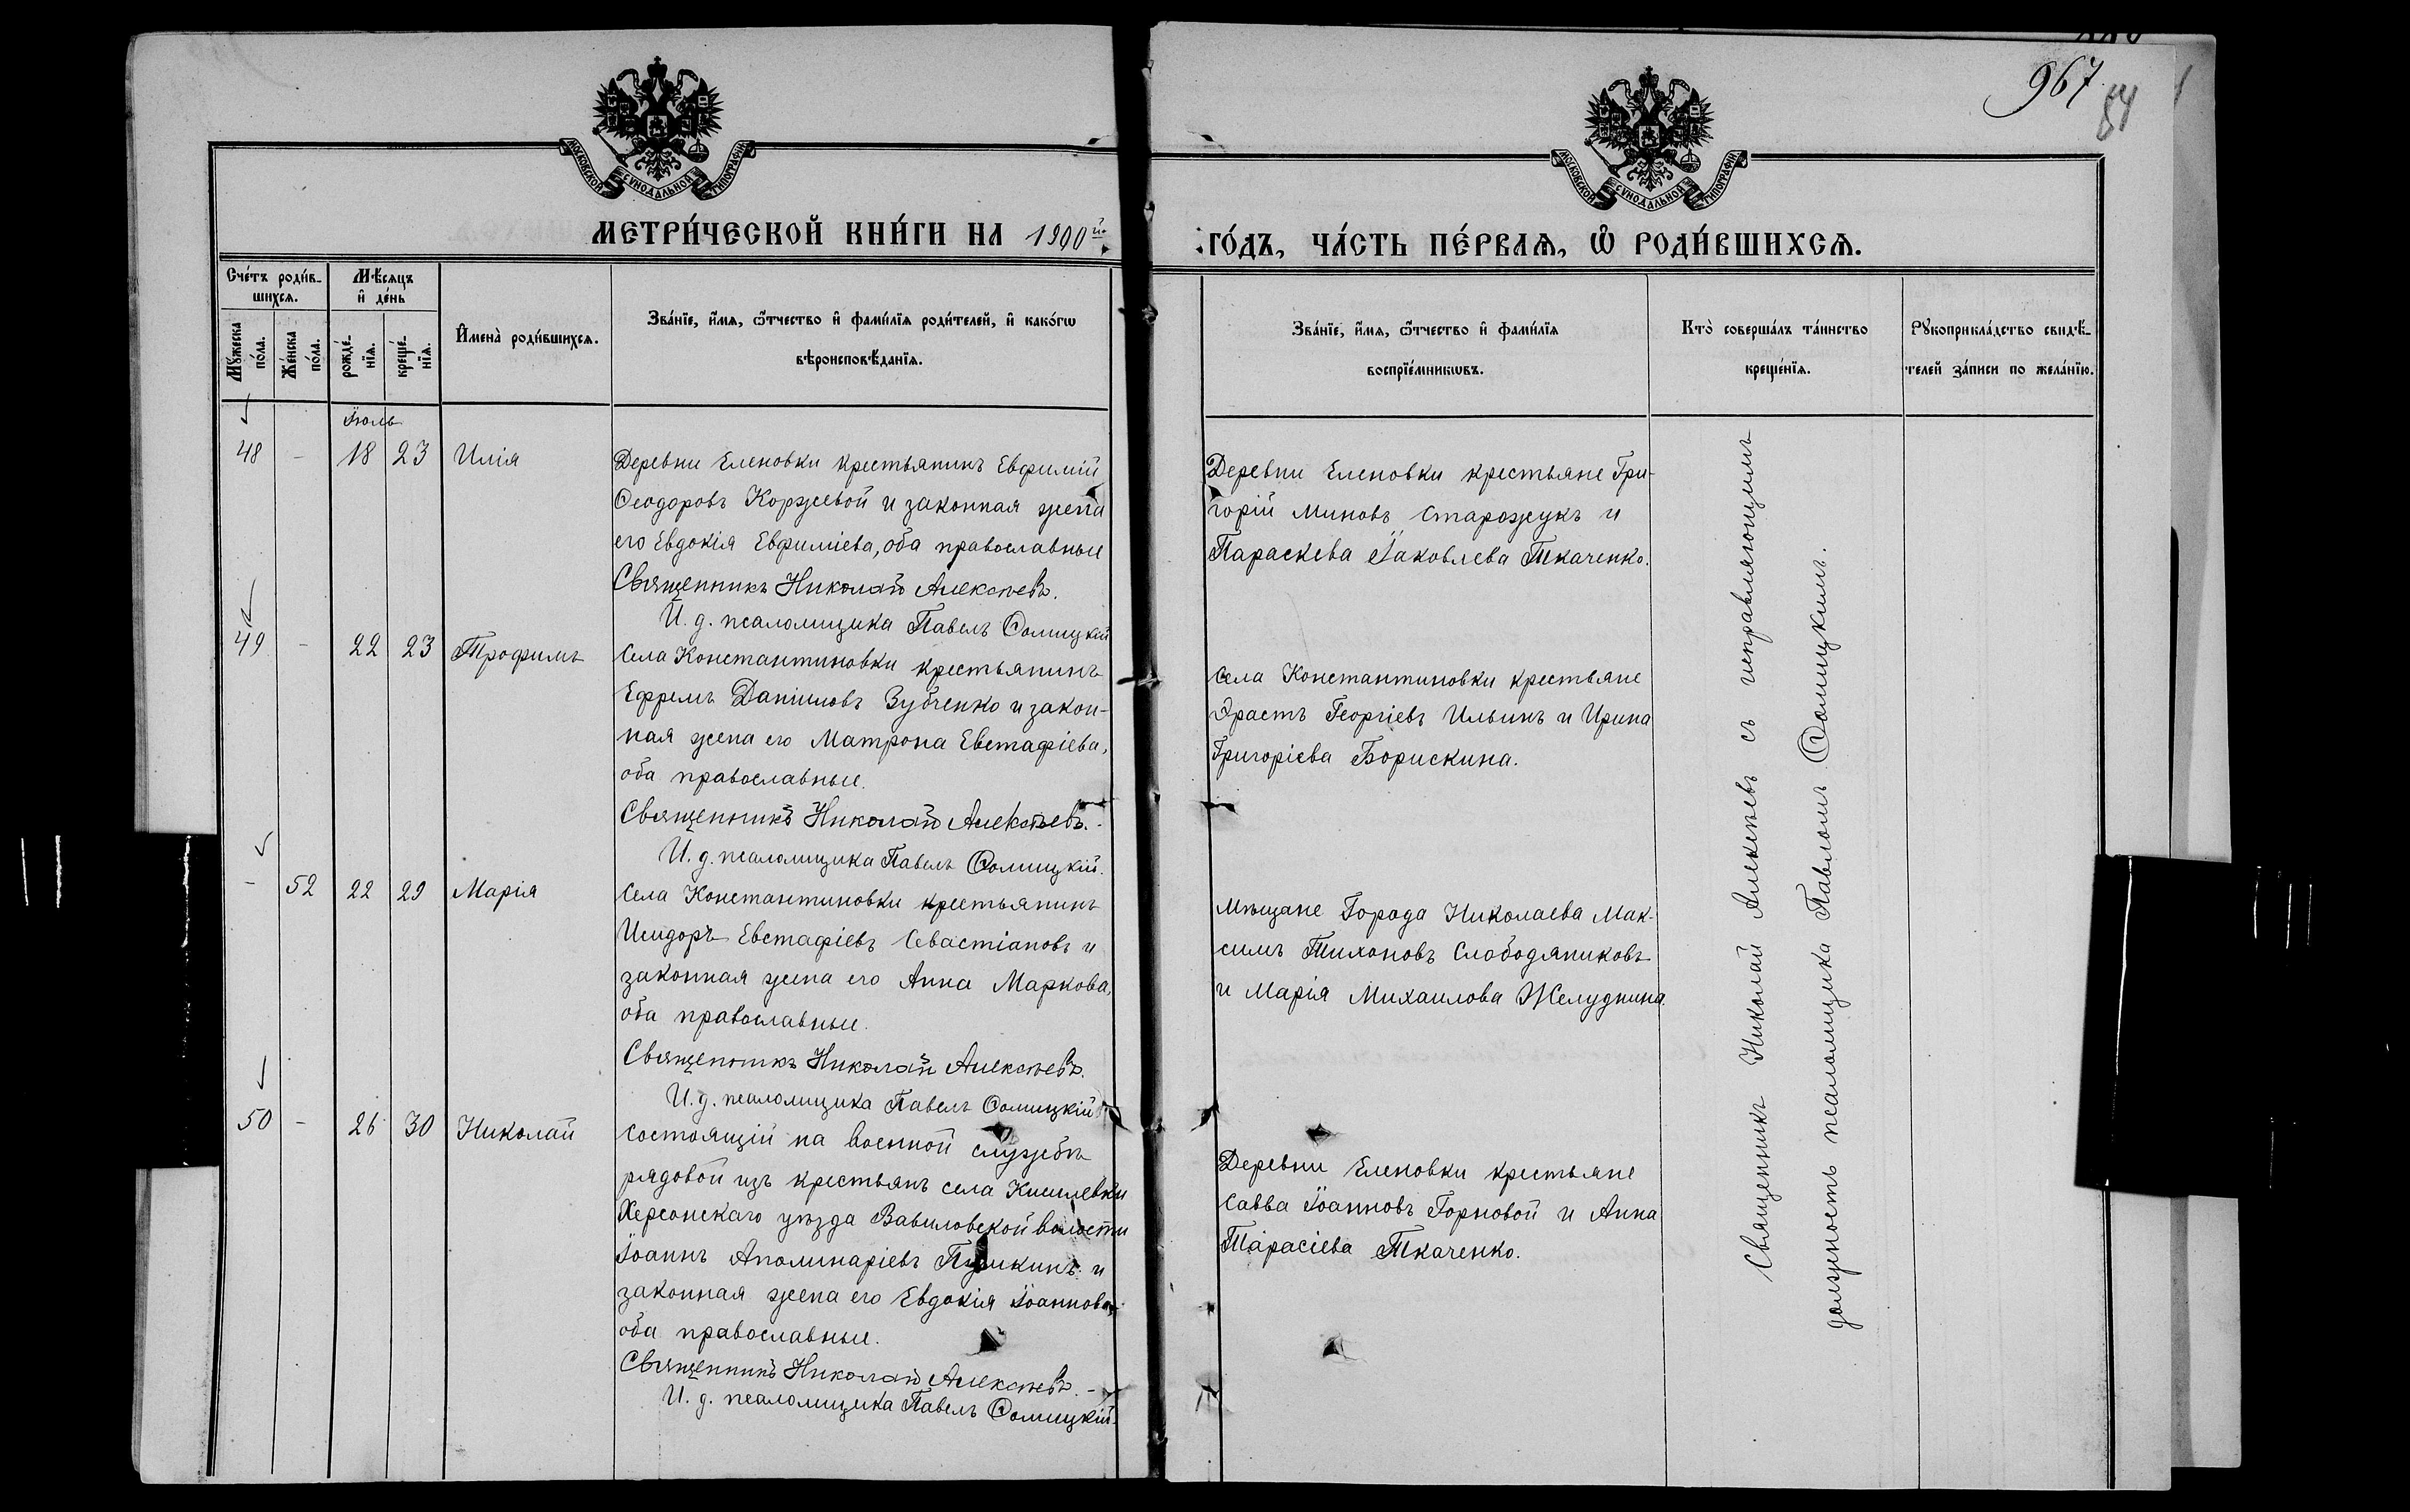 967
84
МОСКОВСКОЙ СѴНОДАЛЬНОЙ ТИПОГРАФІИ
МОСКОВСКОЙ СѴНОДАЛЬНОЙ ТИПОГРАФІИ
МЕТРИ́ЧЕСКОЙ КНИ́ГИ НА 1900й
ГО́ДЪ, ЧА́СТЬ ПЕ́РВАѦ, Ѽ РОДИ́ВШИХСѦ.
Сче́тъ роди́в-
шихсѧ.
Мѣ́сѧцъ
и҆ де́нь
Мꙋ́жеска
по́ла.
Же́нска
по́ла.
рожде́-
нїѧ.
креще́-
нїѧ.
И҆мена̀ роди́вшихсѧ.
Зва́нїе, и҆́мѧ, ѻ҆́тчество и҆ фами́лїѧ роди́телей, и҆ како́гѡ
вѣроисповѣ́данїѧ.
Зва́нїе, и҆́мѧ, ѻ҆́тчество и҆ фами́лїѧ
воспрїе́мникѡвъ.
Кто̀ соверша́лъ та́инство
креще́нїѧ.
Рꙋкоприкла́дство свидѣ́-
телей за́писи по жела́нїю.
Іюль
48 - 18 23 Илія
Деревни Еленовки крестьянинъ Евфимій
Ѳеодоровъ Коржевой и законная жена
его Евдокія Евфиміева, оба православные
Священникъ Николай Алексѣевъ.
И. д. псаломщика Павелъ Ѳомицкій
Деревни Еленовки крестьяне Гри-
горій Миновъ Старожукъ и
Параскева Іаковлева Ткаченко.
49 - 22 23 Трофимъ
Села Константиновки крестьянинъ
Ефремъ Даниловъ Зубченко и закон-
ная жена его Матрона Евстафіева,
оба православные.
Священникъ Николай Алексѣевъ.
И. д. псаломщика Павелъ Ѳомицкій.
Села Константиновки крестьяне
Эрастъ Георгіевъ Ильинъ и Ирина
Григоріева Борискина.
- 52 22 29 Марія
Села Константиновки крестьянинъ
Исидоръ Евстафіевъ Севастіановъ и
законная жена его Анна Маркова,
оба православные.
Священникъ Николай Алексѣевъ.
И. д. псаломщика Павелъ Ѳомицкій
Мѣщане Города Николаева Мак-
симъ Тихоновъ Слободяниковъ
и Марія Михаилова Желуднина.
50 - 26 30 Николай
Состоящій на военной службѣ
рядовой изъ крестьянъ села Киселевки
Херсонскаго уѣзда Вавиловской волости
Іоаннъ Аполинаріевъ и
законная жена его Евдокія Іоаннова,
оба православные.
Священникъ Николай Алексѣевъ.-
И. д. псаломщика Павелъ Ѳомицкій.
Деревни Еленовки крестьяне
Савва Іоанновъ Горновой и Анна
Тарасіева Ткаченко.
Священникъ Николай Алексѣевъ съ исправляющимъ
должность псаломщика Павломъ Ѳомицкимъ.